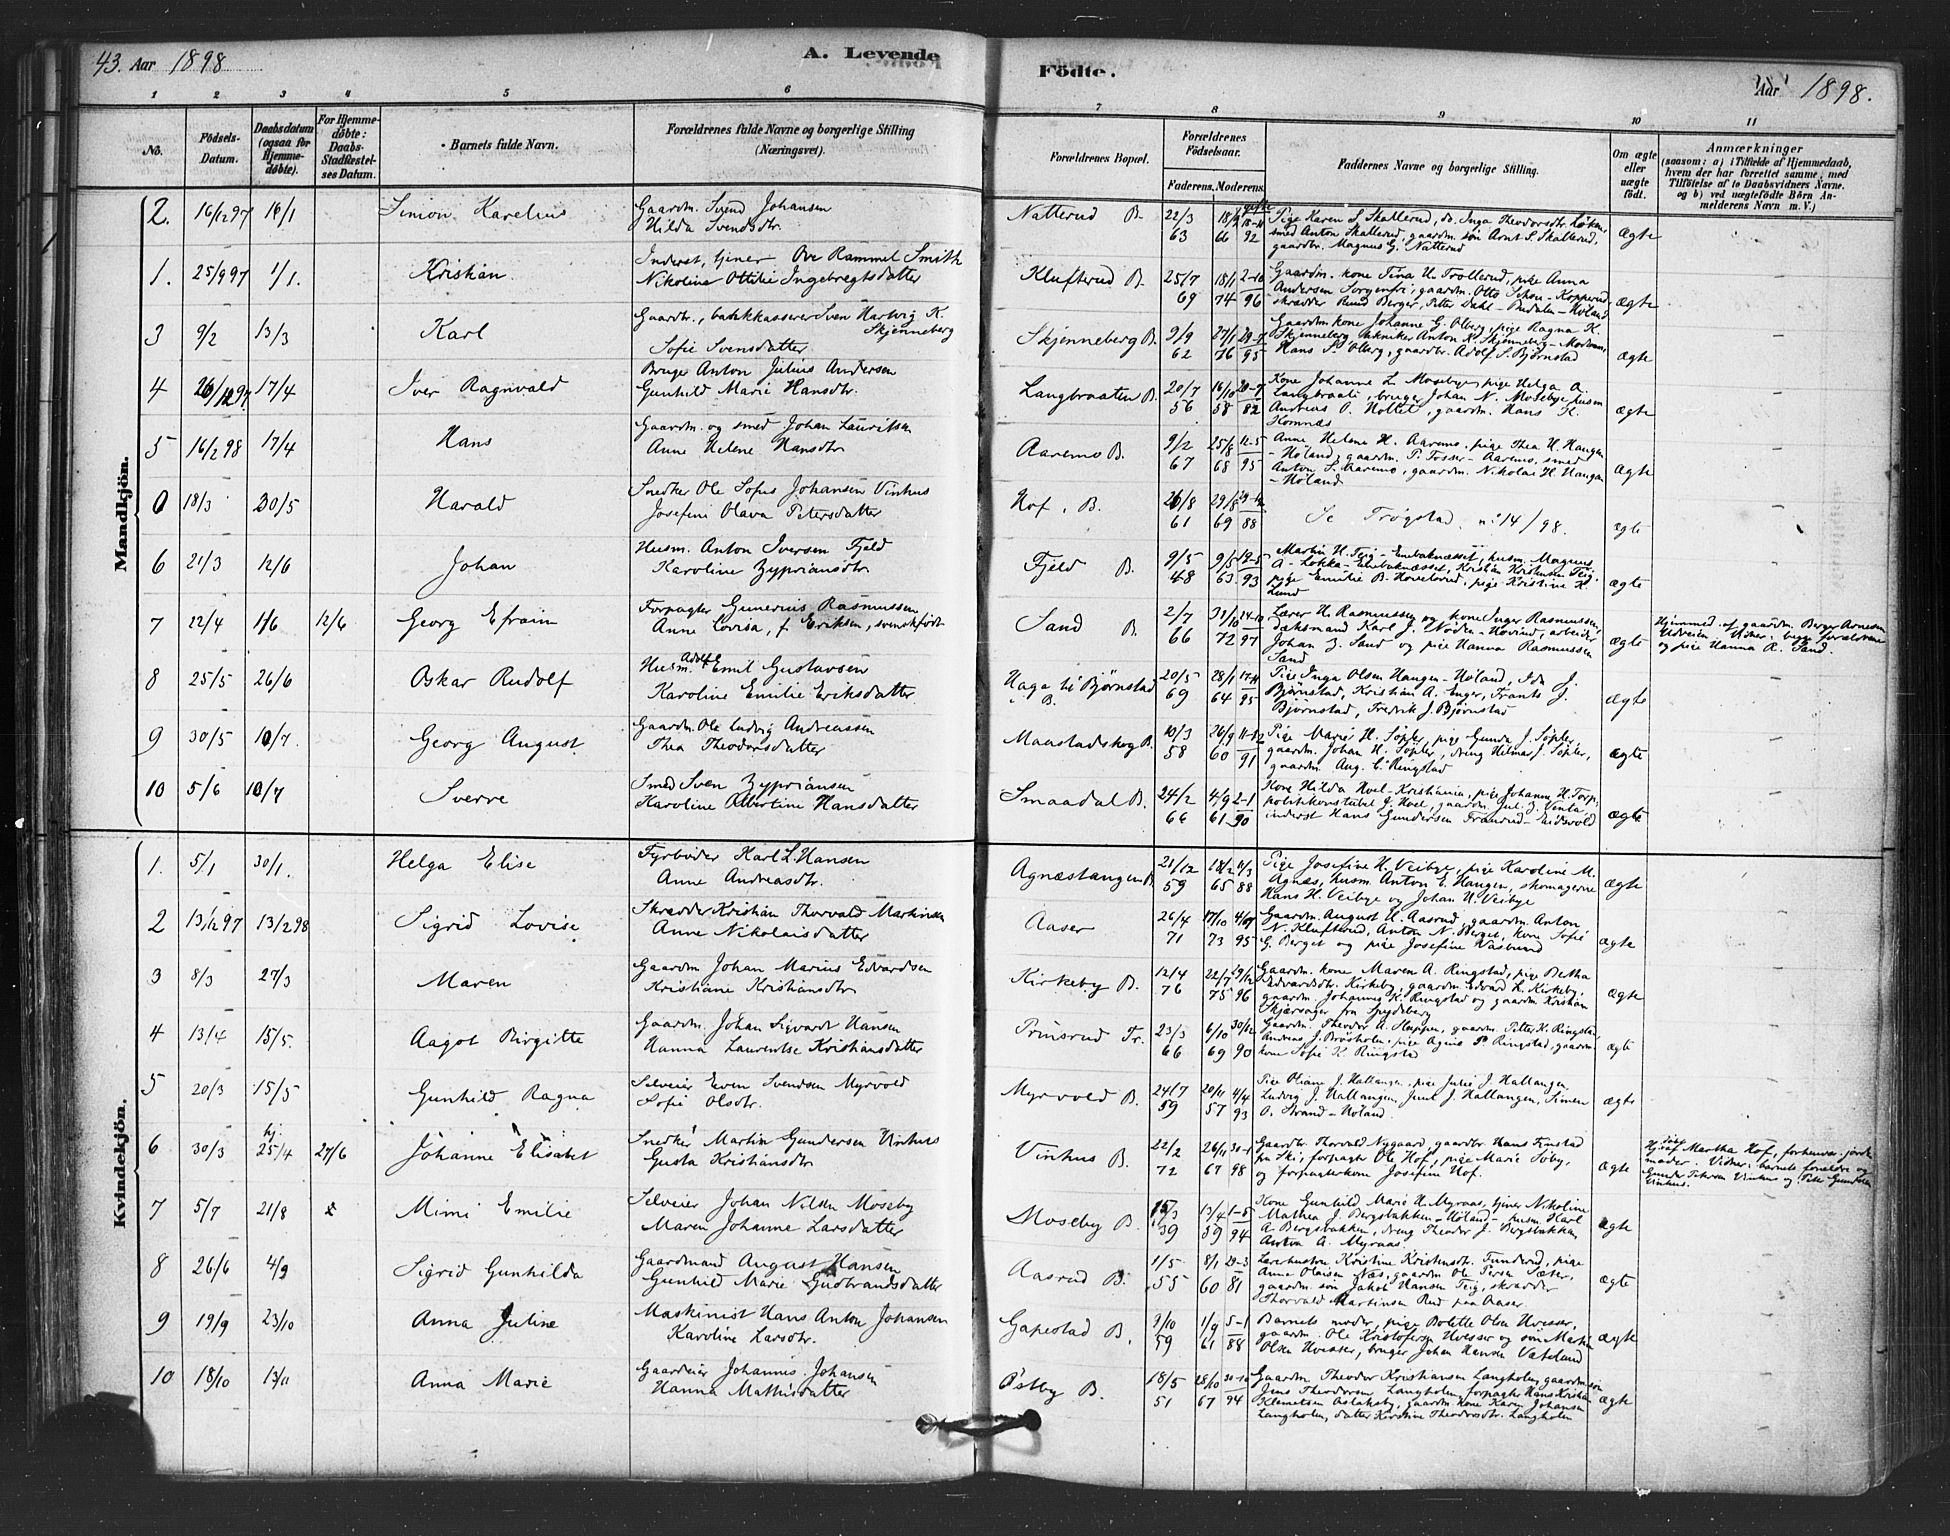 43. Aar 1898
A. Levende
Födte.
Aar 1898.
1 2 3 4 5 6 7 8 9 10 11
No.
Födsels-Datum.
Daabsdatum (ogsaa for Hjemmedøbte).
For Hjemmedøbte: Daabs-Stadfæstelses Datum.
Barnets fulde Navn.
Forældrenes fulde Navne og borgerlige Stilling (Næringsvei).
Forældrenes Bopæl.
Forældrenes Födselsaar.
Faderens. Moderens.
Faddernes Navne og borgerlige Stilling.
Om ægte eller uægte födt.
Anmærkninger
(saasom: a) i Tilfælde af Hjemmedaab, hvem der har forrettet samme, med Tilföielse af to Daabsvidners Navne. og b) ved uægtefödte Börn Anmelderens Navn m. V.)
Mandkjön.
2. 16/12 97 16/1 Simon Karelius Gaardm. Svend Johansen
Hilda Svendsdtr. Natterud B. 22/3 63 66 92 Pige Karen S. Skallerud, do. Inga Theodorsdtr. Løken,
smed Anton Skallerud, gaardm. søn Arnt S. Skallerud,
gaardbr. Magnus G. Natterud ægte
1. 25/9 97 1/1. Kristian Inderst, tjener Ove Rammel Smith
Nikoline Ottilie Ingebregtsdatter Klufterud B. 25/7 69 18/1 74 2-10 96 Gaardm. kone Tina U. Trollerud, pige Anna
Andersen Sorgenfri, gaardm. Otto Kopperud,
skrædder Berger, Petter Dahl Høland ægte
3 9/2 13/3 Karl Gaardbr., bankkasserer Sven Hartvig K.
Skjenneberg
Sofie Svensdatter Skjenneberg B. 9/9 62 27/1 76 95 Gaardm. kone Johanne G. Olberg, pige Ragna K.
Skjenneberg, tekniker Anton K. Skjenneberg
Hans P. Olberg, gaardbr. Adolf S. Bjørnstad ægte
4 17/4 Iver Ragnvald Bruger Anton Julius Andersen
Gunhild Marie Hansdtr. Langbraaten B. 20/7 56 16/10 58 82 Kone Johanne L. Mosebye, pige Helga A.
Langbraate, bruger Johan N. Mosebye, husm.
Andreas O. gaardm. Hans K.
Komnæs ægte
5 16/2 98 17/4 Hans Gaardm. og smed Johan Lauritsen
Anne Helene Hansdtr. Aaremo B. 9/2 67 25/8 68 12-5 95 Anne Helene H. Aaremo, pige Thea H. Haugen
- Høland, gaardm. P. Fosser - Aaremo, smed
Anton L. Aaremo, gaardm. Nikolai H. Haugan
- Høland ægte
0 18/3 30/5 Harald Snedker Ole Sofus Johansen Vinhus
Josefine Olava Petersdatter Hof. B. 26/8 61 29/8 69 88 Se Trøgstad no 14/98. ægte
6 21/3 12/6 Johan Husm. Anton Iversen Fjeld
Karoline Zypriansdtr. Fjeld B. 9/5 48 9/5 63 93 Martin H. Teig - Enebaknæsset, husm. Magnus
A. Løkka - Enebaknæsset, Kristian Kristensen Teig,
pige Emilie B. pige Kristine K.
Lund ægte
7 22/4 1/6 12/6 Georg Efraim Forpagter Gunerius Rasmussen
Anne Lovisa, f. Eriksen, svenskfødt Sand B. 2/7 66 72 97 Lærer H. Rasmussen og kone Inger Rasmussen,
dæksmand Karl J. arbeider
Johan Z. Sand og pige Hanna Rasmussen
Sand ægte Hjemmed. af gaardm. Berger Arnesen
Vidner: begge forældrene
og pige Hanna R. Sand.
8 25/5 26/6 Oskar Rudolf Husm. Adolf Emil Gustavsen
Karoline Emilie Eriksdatter Haga u/ Bjørnstad B. 20/5 69 28/1 64 95 Pige Inga Olsen Haugen - Høland, Ida J.
Bjørnstad, Kristian A. Enger, Frants J.
Bjørnstad, Fredrik J. Bjørnstad ægte
9 30/5 10/7. Georg August Gaardm. Ole Ludvig Andreassen
Thea Theodorsdatter Maastadskog B. 10/3 58 26/9 60 91 Pige Marie H. Søpler, pige Gunda J. Søpler,
gaardm. Johan H. Søpler, dreng Hilmar J. Søpler,
gaardm. Aug. E. Ringstad ægte
10 5/6 10/7 Sverre Smed Sven Zypriansen
Karoline Albertine Hansdatter Smaadal B. 24/2 66 4/9 61 2-1 90 Kone Hilda Hoel - Kristiania, pige Johanne H. Torp,
politikonstabel J. Hoel, gaardm. Jul. J.
inderst Hans Gundersen - Eidsvold ægte
Kvindekjön.
1. 5/1 30/1. Helga Elise Fyrbøder Karl L. Hansen
Anne Andreasdtr. Agnæstangen B. 21/12 59 18/2 65 11/3 88 Pige Josefine H. Veibye, pige Karoline M.
Agnæs, husm. Anton E. Haugen, skomagerne
Hans H. Veibye og Johan H. Veibye ægte
2 13/12 97 13/2 98 Sigrid Lovise Skrædder Kristian Thorvald Martinsen
Anne Nikolaisdatter Aaser 26/4 71 17/10 73 95 Gaardm. August H. Aasrud, gaardm. Anton
N. Klufterud, Anton N. Berget, kone Sofie
G. Berget og pige Josefine ægte
3 8/3 27/3 Maren Gaardm. Johan Marius Edvardsen
Kristiane Kristiansdtr. Kirkeby B. 12/4 76 22/7 75 29/12 96 Gaardm. kone, Maren A. Ringstad, pige Betha
Edvardsdtr. Kirkeby, gaardm. Edvard L. Kirkeby,
gaardm. Johannes K. Ringstad og gaardm. Kristian
Skjærvager fra Spydeberg ægte
4 13/4 15/5. Aagot Birgitte Gaardm. Johan Sigvardt Hansen
Hanna Laurentse Kristiansdatter Prinsrud Tr. 23/3 66 6/10 69 30/12 90 Gaardm. Theodor A. gaardm. Petter K. Ringstad,
Andreas J. Brøsholen, pige Agnes P. Ringstad, gaardm.
kone Sofie K. Ringstad ægte
5 20/3 15/5 Gunhild Ragna Selveier Even Svendsen Myrvold
Sofie Olsdtr. Myrvold B. 24/7 59 20/11 57 4/4 93 Pige Oliane J. Hallangen, pige Julie J. Hallangen,
Ludvig J. Hallangen, Juul J. Hallangen, Simen
O. Strand - Høland. ægte
6 30/3 hj. 25/4 27/6 Johanne Elisabet Snedker Martin Gundersen Vinhus
Gusta Kristiansdtr. Vinhus B. 22/2 72 26/11 67 98 Gaardbr. Thorvald Nygaard, gaardbr. Hans Finstad
fra Ski, forpagter Ole Hof, pige Marie Søby,
og forpagterkone Josefine Hof. ægte Hj.døbt af Martha Hof, forhenvær. jordemoder.
Vidner: barnets forældre og
Gunder Petersen Vinhus og Peter Gundersen
Vinhus.
7 5/7 21/8 Mimi Emilie Selveier Johan Nilsen Moseby
Maren Johanne Larsdatter Moseby B. 15/3 39 13/4 59 1-5 94 Kone Gunhild Marie H. Myraas, tjener Nikoline
Mathea J. Bergsbakken - Høland - husm. Karl
A. Bergsbakken, dreng Theodor J. Bergsbakken,
Anton A. Myraas ægte
8 26/6 4/9 Sigrid Gunhilda Gaardmand August Hansen
Gunhild Marie Gudbrandsdatter Aasrud B. 1/5 55 8/1 60 29-3 81 Lærerhustru Kristine Kristensdtr. Funderud, pige
Anna Olaisen Næs, gaardm. Ole Persen Sæter,
gaardm. søn Jakob Hansen Teig, skrædder
Thorvald Martinsen Rud paa Aaser ægte
9 19/9 23/10 Anna Juline Maskinist Hans Anton Johansen
Karoline Larsdtr. Gapestad B. 9/10 59 1/9 61 5-1 88 Barnets moder, pige Bolette Olsen Uvesser,
gaardm. Ole Kristofersen Uvesser og søn Martin
Olsen Uvesser, bruger Johan Hansen Vateland ægte
10 18/10 13/11 Anna Marie Gaardeier Johannes Johansen
Hanna Mathisdatter Østby B. 18/5 51 28/10 67 94 Gaardm. Theodor Kristiansen Langholen, gaardm. søn
Jens Theodorsen Langholen, forpagter Hans Kristian
Klemetsen Oslaksby, gaardm. kone Karen Johansen
Langholen, datter Kirstine Theodorsdtr. Langholen ægte